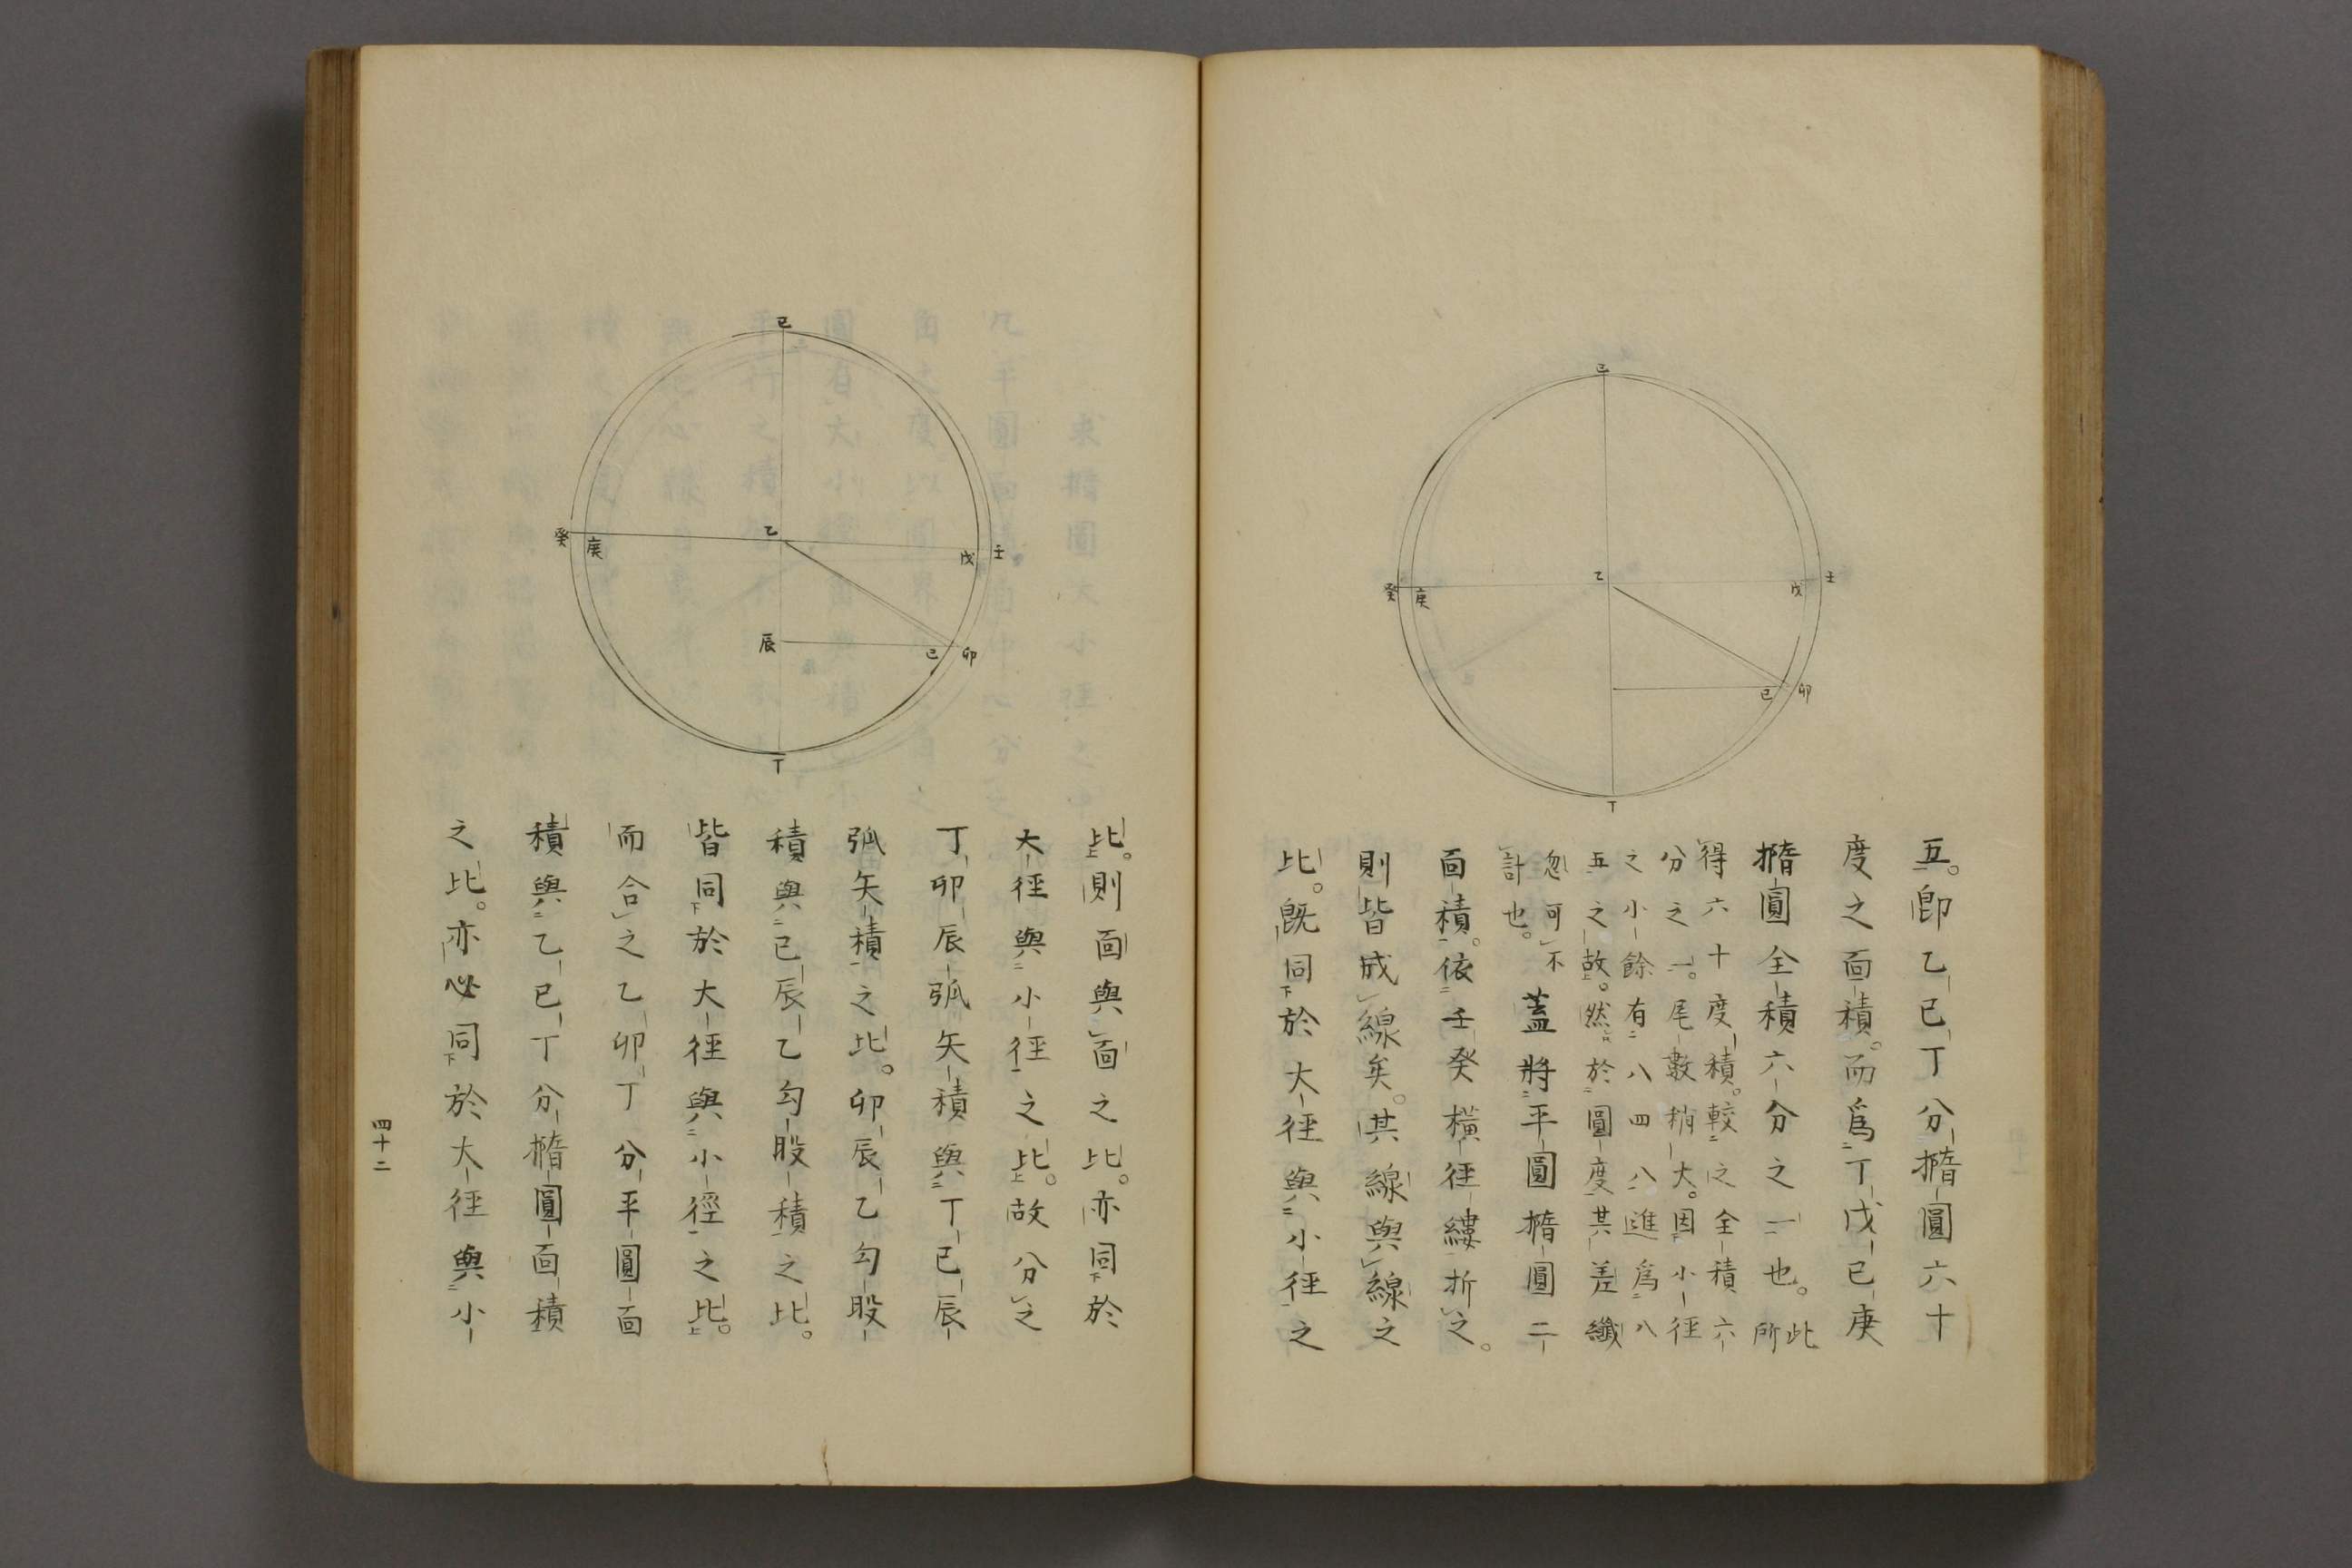 五。卽乙巳丁分橢圓六十
度之面積。而爲丁戊己庚
橢圓全積六分之一也。此所
得六十度積。較之全積六
分之一。尾數稍大。因小徑
之小餘有八四八。進爲八
五之故。然於圓度其差纖
忽可不
計也。
蓋將平圓橢圓二
面積。依壬癸橫徑縷折之。
則皆成線矣。其線與線之
比。旣同於大徑與小徑之
己
乙
癸
庚
戊
壬
巳
卯
丁
比。則面與面之比。亦同於
大徑與小徑之比。故分之
丁卯辰弧矢積與丁巳辰
弧矢積之比。卯辰乙勾股
積與巳辰乙勾股積之比。
皆同於大徑與小徑之比。
而合之乙卯丁分平圓面
積與乙巳丁分橢圓面積
之比。亦必同於大徑與小
己
乙
癸
庚
戊
壬
辰
巳
卯
丁
四十二